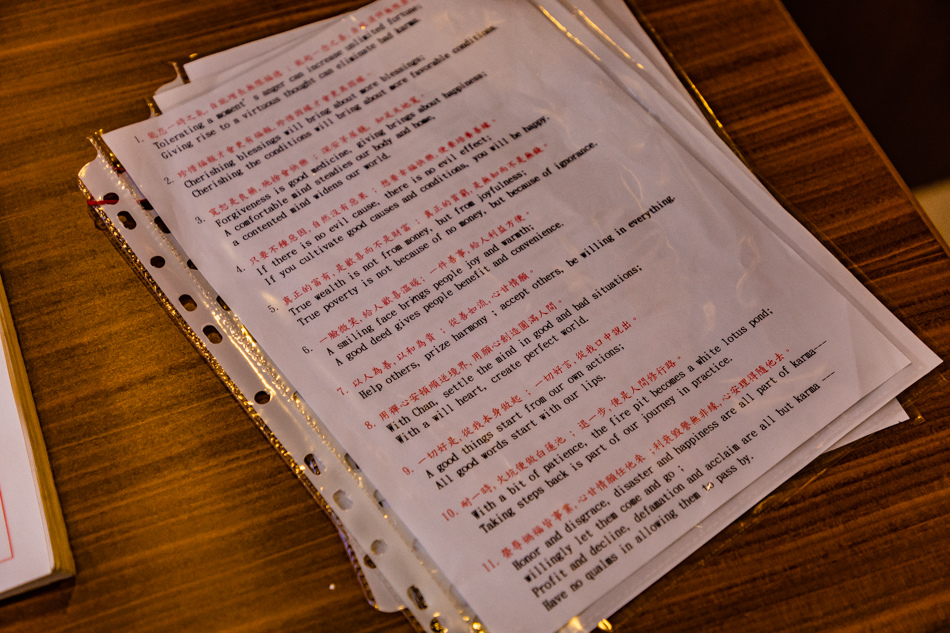 1. 能忍一時之氣,自能增長無限福德
Tolerating a moment's anger can increase unlimited fortune;
Giving rise to a virtuous thought can eliminate bad karma.
2. 珍惜福報才會更有福報,珍惜因緣才會更具因緣。
Cherishing blessings will bring about more blessings;
Cherishing the conditions will bring about more favorable conditions.
3. 寬恕是良藥,施捨會快樂;
Forgiveness is good medicine, giving brings about happiness;
A comfortable mind steadies our body and home,
a contented mind widens our world.
4. 只要不種惡因,自然沒有惡果;
If there is no evil cause, there is no evil effect;
If you cultivate good causes and conditions, you will be happy.
5. 真正的富有,是歡喜而不是財富;真正的貧窮,是無知而不是無錢。
True wealth is not from money, but from joyfulness;
True poverty is not because of no money, but because of ignorance.
6. 一臉微笑,給人歡喜溫暖;一件善事,給人利益方便。
A smiling face brings people joy and warmth;
A good deed gives people benefit and convenience.
7. 以人為善,以和為貴;從善如流,心甘情願。
Help others, prize harmony ; accept others, be willing in everything.
8. 用禪心安頓順逆境界,用願心創造圓滿人間。
With Chan, settle the mind in good and bad situations;
With a will heart, create perfect world.
9. 一切好是,從我本身做起;一切好言,從我口中說出。
A good things start from our own actions;
All good words start with our lips.
10. 耐一時,火坑便做白蓮池;退一步,便是人間修行路。
With a bit of patience, the fire pit becomes a white lotus pond;
Taking steps back is part of our journey in practice.
11. 榮辱禍福皆事業,心甘情願任他來;利衰毀譽無非緣,心安理得隨他去。
Honor and disgrace, disaster and happiness are all part of karma---
willingly let them come and go ;
Profit and decline, defamation and acclaim are all but karma ---
Have no qualms in allowing them to pass by.